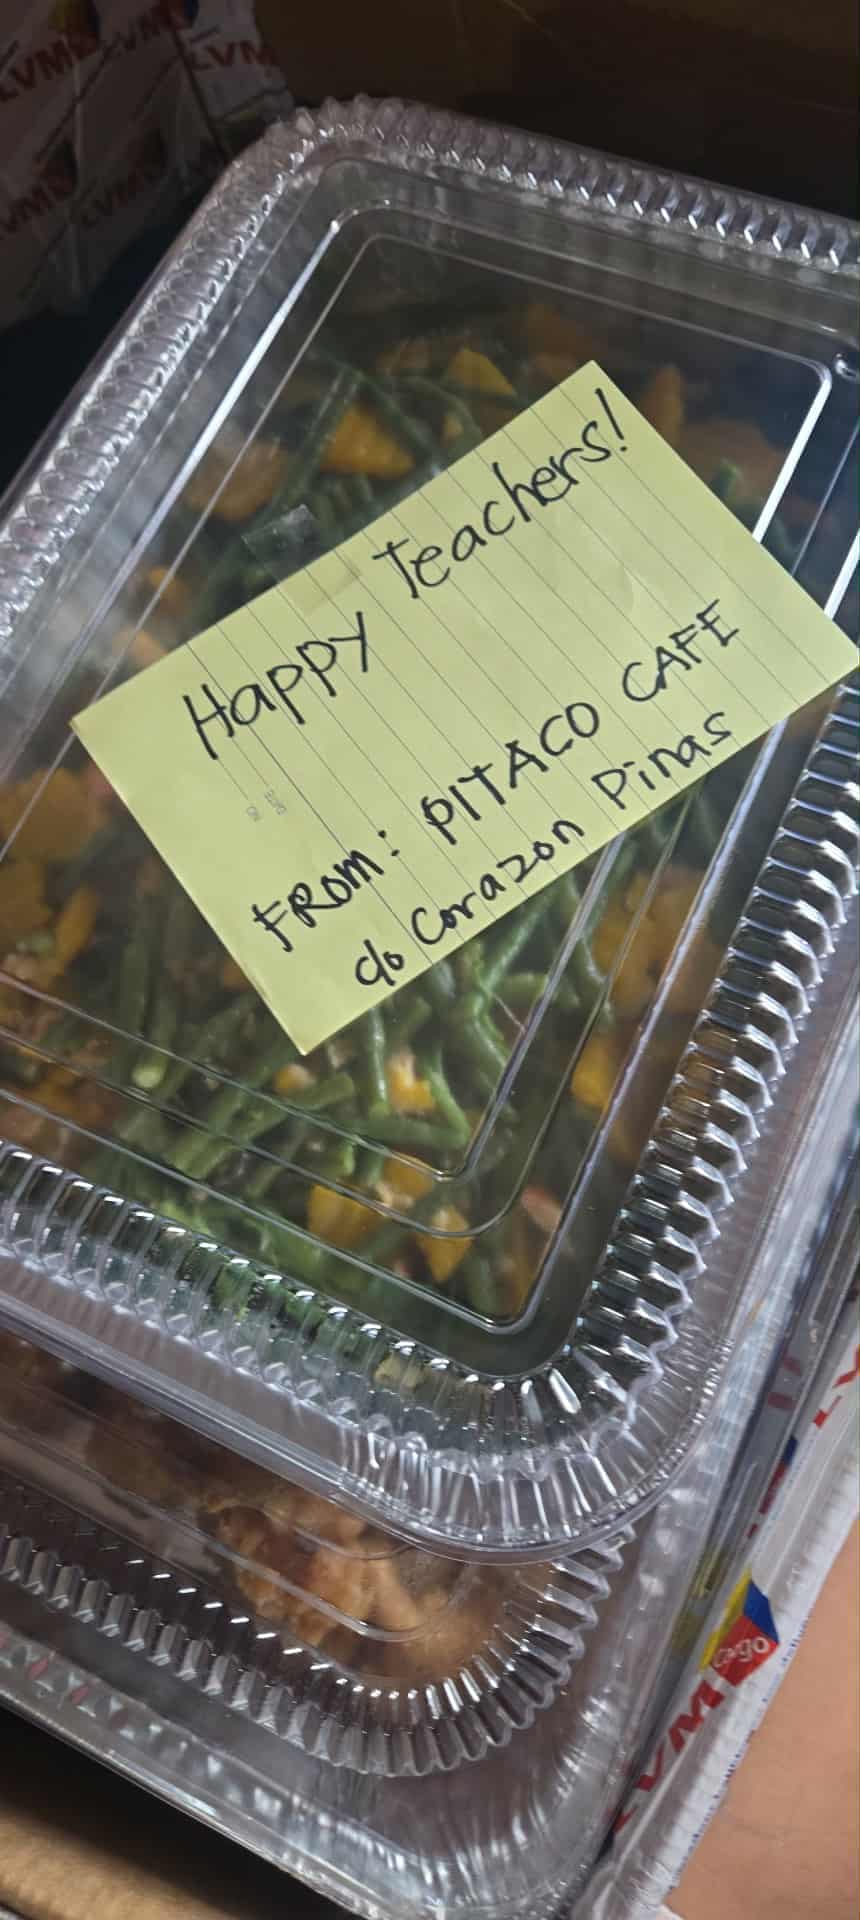 Happy Teachers!
FROM: PITACO CAFE
c/o Corazon Pinas
LVM
LVM
LVM
LVM
Cargo
LVM